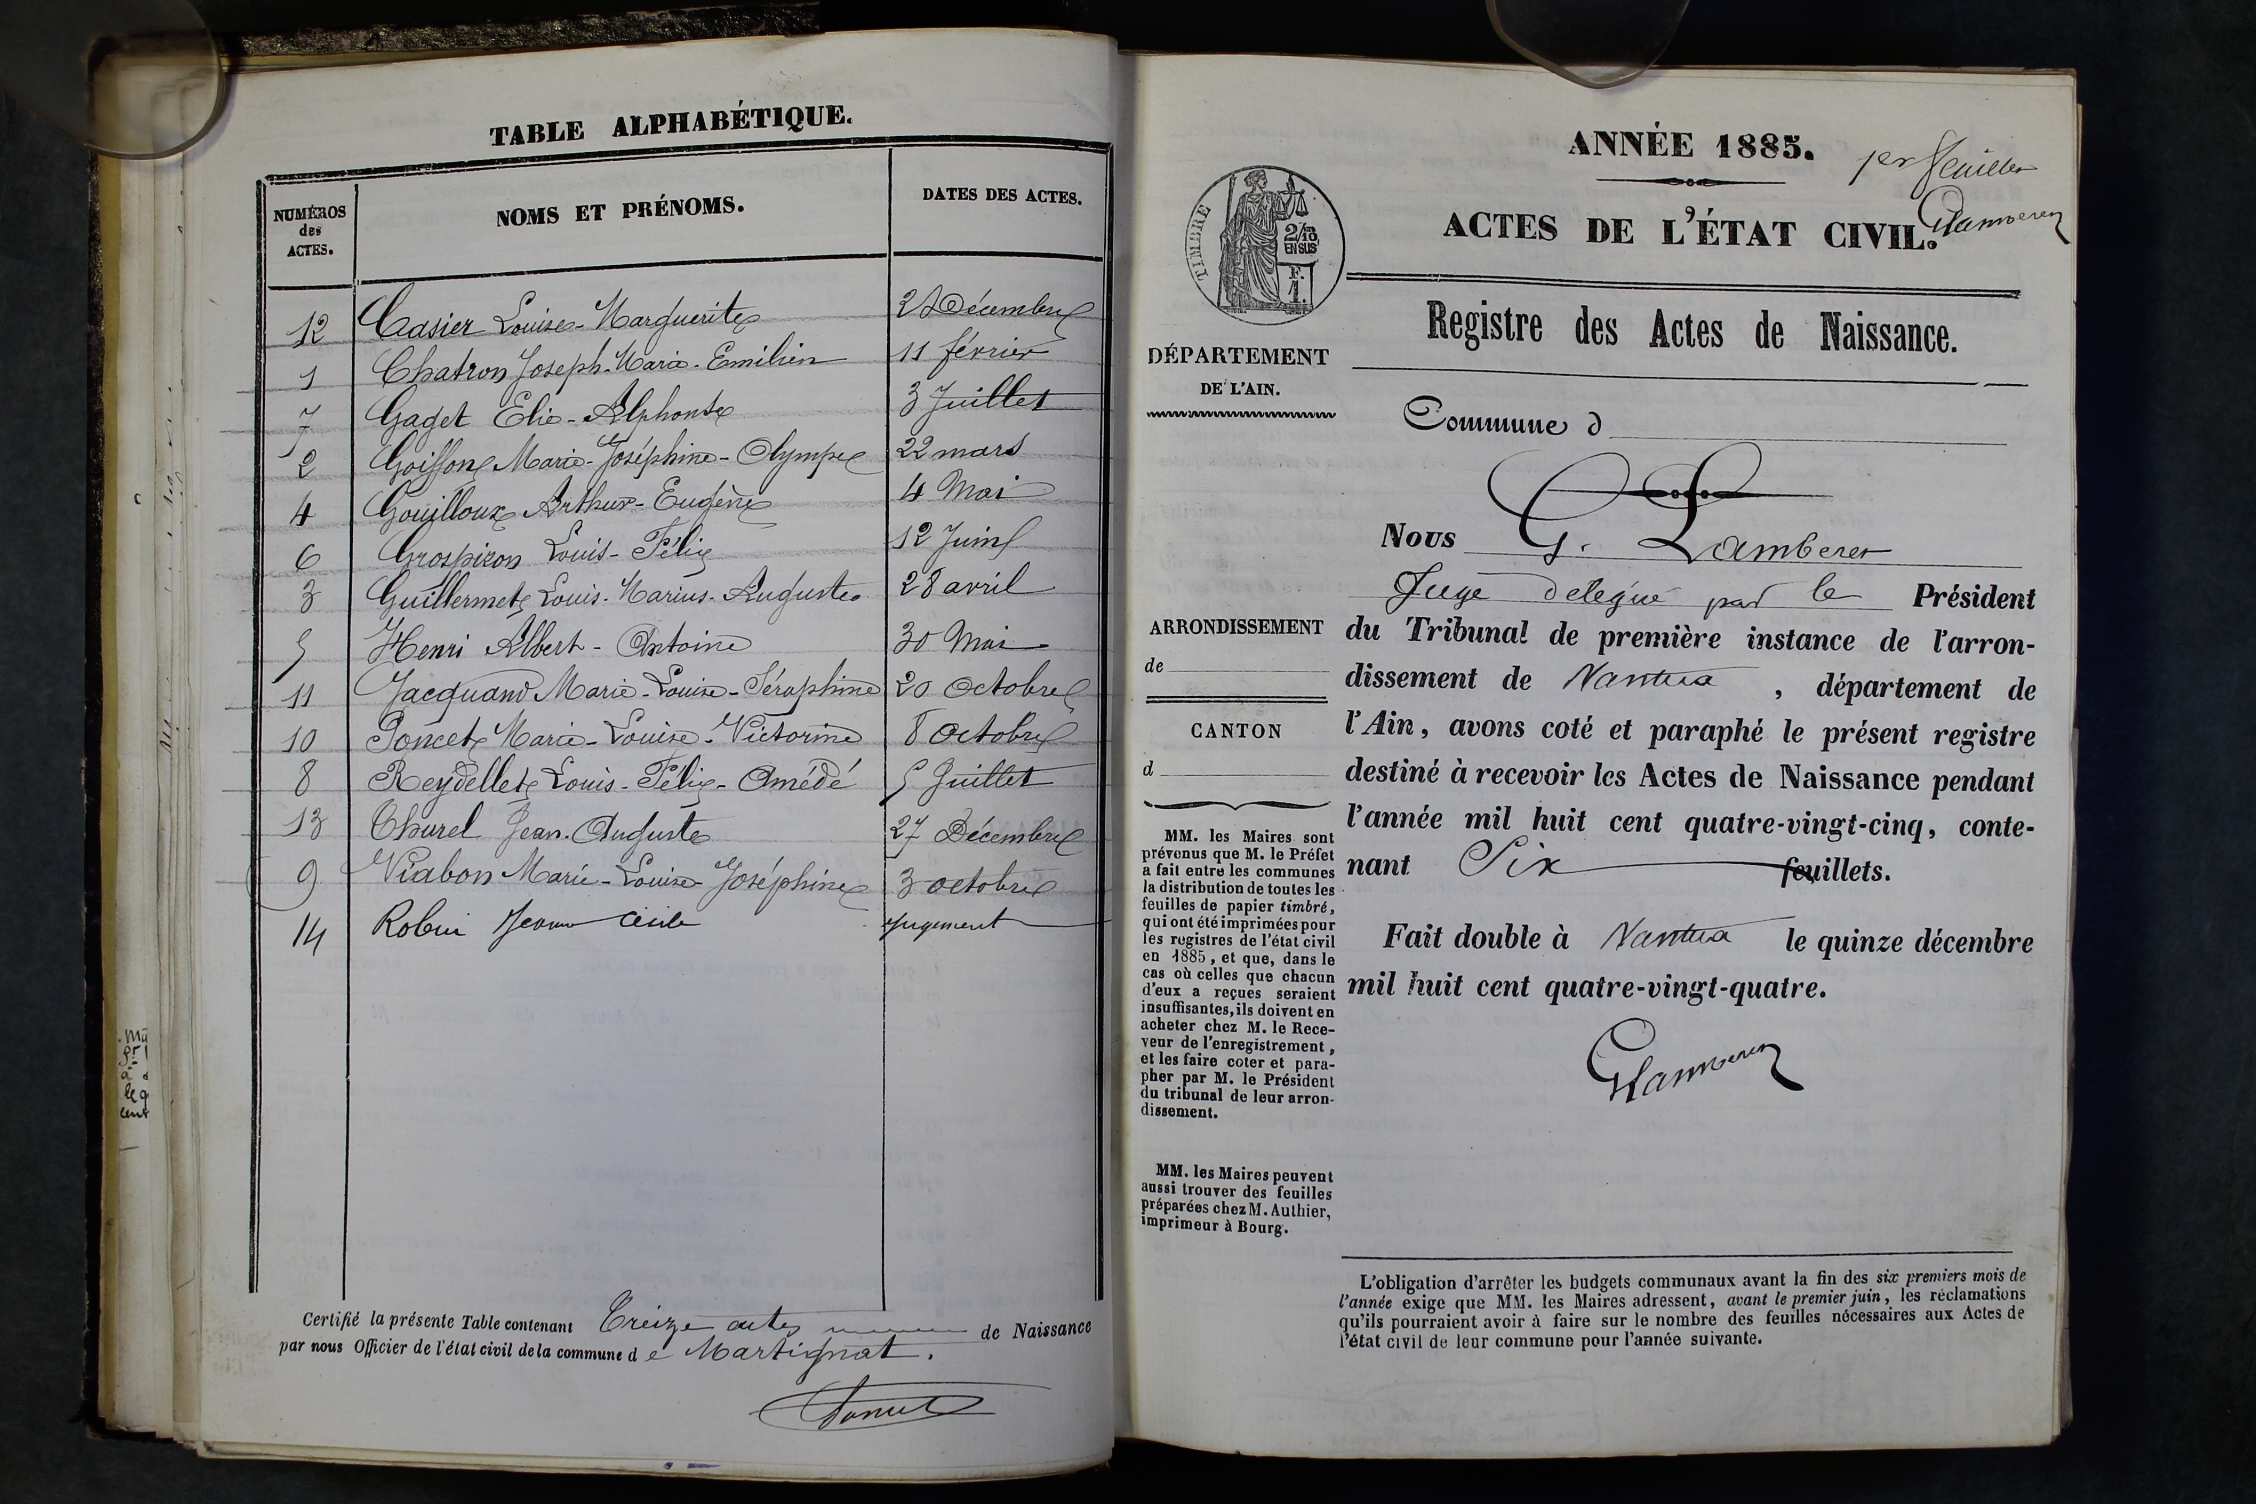 TABLE ALPHABÉTIQUE.
NUMÉROS des ACTES. NOMS ET PRÉNOMS. DATES DES ACTES.
12 Casier Louise-Marguerite 21 Décembre
1 Chatron Joseph-Marie-Emilien 11 février
7 Gaget Elie-Alphonse 3 Juillet
2 Goiffon Marie-Joséphine-Olympe 22 mars
4 Gouilloux Arthur-Eugène 4 Mai
6 Grospiron Louis-Félix 12 Juin
3 Guillermet Louis-Marius-Auguste 28 avril
5 Henri Albert-Antoine 30 Mai
11 Jacquand Marie-Louise-Séraphine 20 Octobre
10 Poncet Marie-Louise-Victorine 8 Octobre
8 Reydellet Louis-Félix-Amédé 5 Juillet
13 Thurel Jean-Auguste 27 Décembre
9 Viabon Marie-Louise-Joséphine 3 octobre
14 Robin Jeanne Cécile Jugement
Certifié la présente Table contenant Treize actes de Naissance
par nous Officier de l'état civil de la commune de Martignat.
ANNÉE 1885.
1er feuillet
ACTES DE L'ÉTAT CIVIL.
TIMBRE
2/10 EN SUS
F. 1.
Registre des Actes de Naissance.
DÉPARTEMENT
DE L'AIN.
ARRONDISSEMENT
de
CANTON
d
MM. les Maires sont
prévenus que M. le Préfet
a fait entre les communes
la distribution de toutes les
feuilles de papier timbré,
qui ont été imprimées pour
les registres de l'état civil
en 1885, et que, dans le
cas où celles que chacun
d'eux a reçues seraient
insuffisantes, ils doivent en
acheter chez M. le Rece-
veur de l'enregistrement,
et les faire coter et para-
pher par M. le Président
du tribunal de leur arron-
dissement.
MM. les Maires peuvent
aussi trouver des feuilles
préparées chez M. Authier,
imprimeur à Bourg.
Commune d
Nous G. Lamberet
Juge délégué par le Président
du Tribunal de première instance de l'arron-
dissement de Nantua, département de
l'Ain, avons coté et paraphé le présent registre
destiné à recevoir les Actes de Naissance pendant
l'année mil huit cent quatre-vingt-cinq, conte-
nant Six feuillets.
Fait double à Nantua le quinze décembre
mil huit cent quatre-vingt-quatre.
L'obligation d'arrêter les budgets communaux avant la fin des six premiers mois de
l'année exige que MM. les Maires adressent, avant le premier juin, les réclamations
qu'ils pourraient avoir à faire sur le nombre des feuilles nécessaires aux Actes de
l'état civil de leur commune pour l'année suivante.